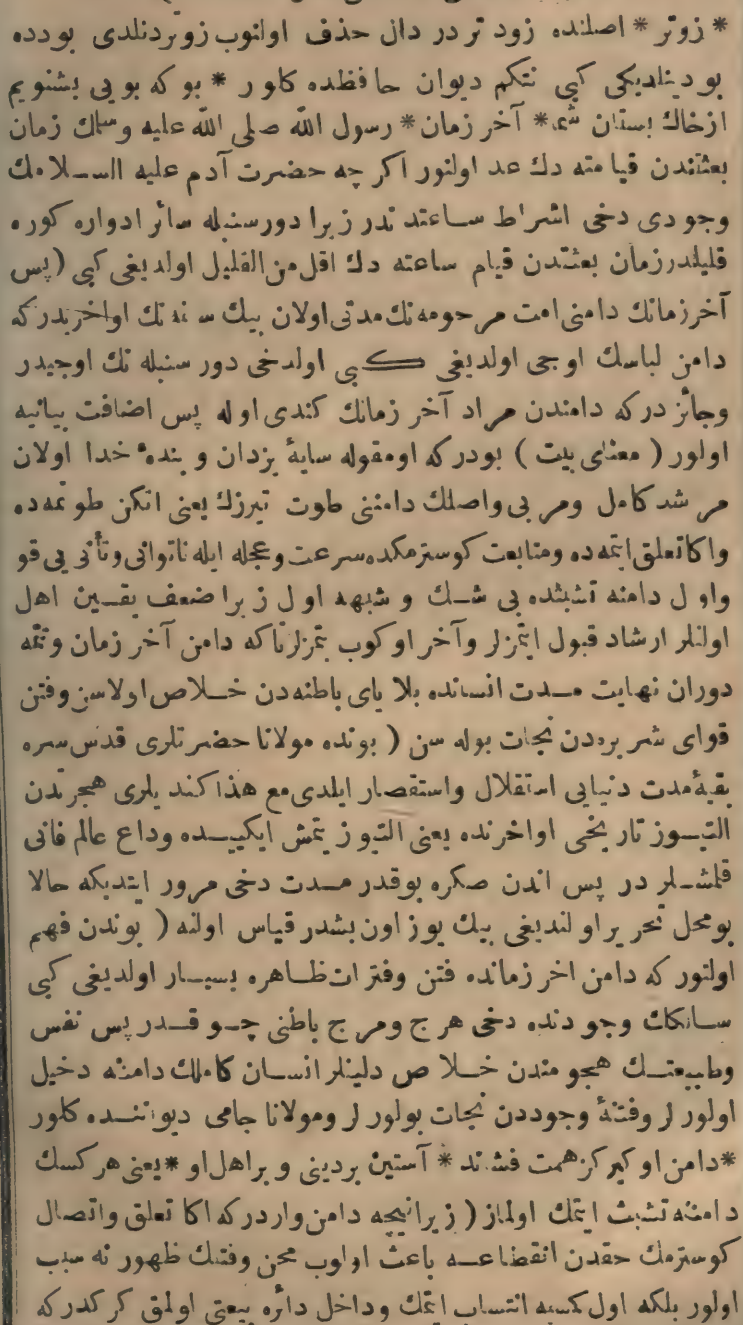 * زوتر * اصلنده زود تر در دال حذف اولنوب زوتر دنلدی بودده
بو دینلدیکی کبی نتکم دیوان حافظده کلور * بو که بویی بشنویم
ازخاك بستان شما * آخر زمان * رسول الله صلی الله علیه وسلمك زمان
بعثتندن قیامته دك عد اولنور اکر چه حضرت آدم علیه السلامك
وجودی دخی اشراط ساعتدندر زیرا دورسنبله سائر ادواره کوره
قلیلدر زمان بعثتدن قیام ساعته دك اقل من القلیل اولدیغی کبی (پس
آخرزمانك دامنی امت مرحومه نك مدتی اولان بیك سنه نك اواخریدر که
دامن لباسك اوجی اولدیغی کبی اولدخی دور سنبله نك اوجیدر
وجائز درکه دامندن مراد آخر زمانك کندی اوله پس اضافت بیانیه
اولور ( معنای بیت ) بودرکه اومقوله سایهٔ یزدان و بندهٔ خدا اولان
مرشد کامل ومربی واصلك دامننی طوت تیزرك یعنی اتکن طوتمه ده
واکا تعلق ایتمه ده ومتابعت کوسترمکده سرعت وعجله ایله ناتوانی وتأنی یی قو
واول دامنه تشبثده بی شك و شبهه اول زیرا ضعف یقین اهل
اولنلر ارشاد قبول ایتمزلر وآخر اوکوب بتمزلر تاکه دامن آخر زمان وتتمه
دوران نهایت مدت انسانده بلایای باطنه دن خلاص اولاسن وفتن
قوای شریره دن نجات بوله سن ( بونده مولانا حضرتلری قدس سره
بقیهٔ مدت دنیایی استقلال واستقصار ایلدی مع هذا کندیلری هجرتدن
التیوز تاریخی اواخرنده یعنی التیوز یتمش ایکیده وداع عالم فانی
قلشلر در پس اندن صکره بوقدر مدت دخی مرور ایتدیکه حالا
بومحل تحریر اولندیغی بیك یوز اون بشدر قیاس اولنه ( بوندن فهم
اولنور که دامن اخر زمانده فتن وفترات ظاهره بسیار اولدیغی کبی
سالكك وجودنده دخی هرج ومرج باطنی چوقدر پس نفس
وطبیعتك هجومندن خلاص دلینلر انسان کاملك دامننه دخیل
اولورلر وفتنهٔ وجوددن نجات بولورلر ومولانا جامی دیواننده کلور
* دامن او کیر کز همت فشاند * آستین بردینی و براهل او * یعنی هرکسك
دامننه تشبث ایتمك اولماز ( زیرا نیچه دامن واردر که اکا تعلق واتصال
کوسترمك حقدن انقطاعه باعث اولوب محن وفتنك ظهورنه سبب
اولور بلکه اول کسیه انتساب ایتمك وداخل دائرهٔ بیعتی اولمق کرکدر که